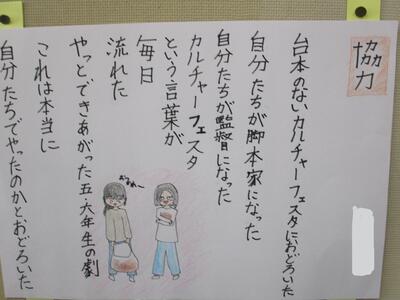 協力
台本のないカルチャーフェスタにおどろいた
自分たちが脚本家になった
自分たちが監督になった
カルチャーフェスタ
という言葉が
毎日
流れた
やっとできあがった五・六年生の劇
これは本当に
自分たちでやったのかとおどろいた